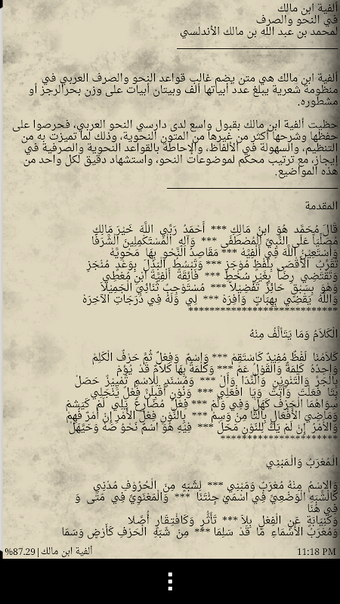 ألفية ابن مالك
في النحو والصرف
لمحمد بن عبد الله بن مالك الأندلسي
ألفية ابن مالك هي متن يضم غالب قواعد النحو والصرف العربي في
منظومة شعرية يبلغ عدد أبياتها ألف وبيتان أبيات على وزن بحرالرجز أو
مشطوره.
حظيت ألفية ابن مالك بقبول واسع لدى دارسي النحو العربي، فحرصوا على
حفظها وشرحها أكثر من غيرها من المتون النحوية، وذلك لما تميزت به من
التنظيم، والسهولة في الألفاظ، والإحاطة بالقواعد النحوية والصرفية في
إيجاز، مع ترتيب محكم لموضوعات النحو، واستشهاد دقيق لكل واحد من
هذه المواضيع.
المقدمة
قَالَ مُحَمَّد هُوَ ابنُ مَالِكِ *** أَحْمَدُ رَبِّي اللَّهَ خَيْرَ مَالِكِ
مُصَلِّيَاً عَلَى النَّبِيِّ الْمُصْطَفَى *** وآلِهِ الْمُسْتَكْمِلِينَ الْشَّرَفَا
وَأَسْتَعِيْنُ اللَّهَ فِي أَلْفِيَّهْ *** مَقَاصِدُ الْنَّحْوِ بِهَا مَحْوِيَّهْ
تُقَرِّبُ الأَقْصَى بِلَفْظٍ مُوْجَزِ *** وَتَبْسُطُ الْبَذْلَ بِوَعْدٍ مُنْجَزِ
وَتَقْتَضِي رِضَاً بِغَيْرِ سُخْطِ *** فَائِقَةً أَلْفِيَّةَ ابْنِ مُعْطِي
وَهْوَ بِسَبْقٍ حَائِزٌ تَفْضِيْلاً *** مُسْتَوْجِبٌ ثَنَائِيَ الْجَمِيْلاَ
وَاللَّهُ يَقْضِي بِهِبَاتٍ وَافِرَهْ *** لِي وَلَهُ فِي دَرَجَاتِ الآخِرَهْ
***********************
الْكَلاَمُ وَمَا يَتَألَّفُ مِنْهُ
كَلاَمُنَا لَفْظٌ مُفِيْدٌ كَاسْتَقِمْ *** وَاسْمٌ وَفِعْلٌ ثُمَّ حَرْفٌ الْكَلِمْ
وَاحِدُهُ كَلِمَةٌ وَالْقَوْلُ عَمْ *** وَكَلْمَةٌ بِهَا كَلاَمٌ قَدْ يُؤَمْ
بِالْجَرِّ وَالْتَّنْوِيْنِ وَالْنِّدَا وَأَلْ *** وَمُسْنَدٍ لِلاسْمِ تَمْيِيْزٌ حَصَلْ
بِتَا فَعَلْتَ وَأَتَتْ وَيَا افْعَلِي *** وَنُوْنِ أَقْبِلَنَّ فِعْلٌ يَنْجَلِي
سِوَاهُمَا الْحَرْفُ كَهَلْ وَفِي وَلَمْ *** فِعْلٌ مُضَارِعٌ يَلِي لَمْ كَيَشَمْ
وَمَاضِيَ الأَفْعَالِ بِالتَّا مِزْ وَسِمْ *** بِالنُّوْنِ فِعْلَ الأَمْرِ إِنْ أَمْرٌ فُهِمْ
وَالأَمْرُ إِنْ لَمْ يَكُ لِلنُّوْنِ مَحَلْ *** فِيْهِ هُوَ اسْمٌ نَحْوُ صَهْ وَحَيَّهَلْ
***********************
المُعْرَبُ وَالْمَبْنِي
وَالاسْمُ مِنْهُ مُعْرَبٌ وَمَبْنِي *** لِشَبَهٍ مِنَ الْحُرُوْفِ مُدْنِي
كَالْشَّبَهِ الْوَضْعِيِّ فِي اسْمَيْ جِئْتَنَا *** وَالْمَعْنَوِيِّ فِي مَتَى وَ
فِي هُنَا
وَكَنِيَابَةٍ عَنِ الْفِعْلِ بِلاَ *** تَأَثُّرٍ وَكَافْتِقَارٍ أُصِّلا
وَمُعْرَبُ الأَسْمَاءِ مَا قَدْ سَلِمَا *** مِنْ شَبَهِ الْحَرْفِ كَأَرْضٍ وَسُمَا
11:18 PM
ألفية ابن مالك | 87.29%